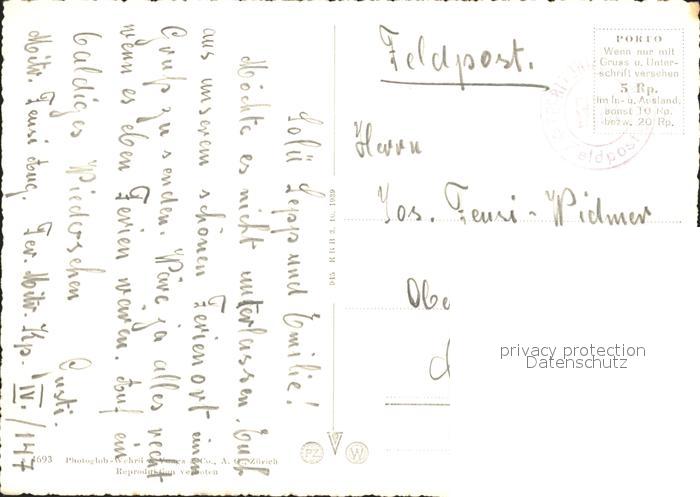 Solü Sepp und Emilie!
Möchte es nicht unterlassen. Euch
aus unserem schönen Ferienort einen
Gruss zu senden. Wäre ja alles recht
wenn es eben Ferien wären. Auf ein
baldiges Wiedersehen
Gusti.
Mitr. Feusi Aug. Ter. Mitr. Kp. IV./147
4693 Photoglob-Wehrli & Vouga & Co., A. G., Zürich
Reproduktion verboten
945 RRB 3. 10. 1939
PZ W
Feldpost.
PORTO
Wenn nur mit
Gruss u. Unter-
schrift versehen
5 Rp.
Im In- u. Ausland.
sonst 10 Rp.
bezw. 20 Rp.
Feldpost
Herrn
Jos. Feusi-Widmer
Obe
privacy protection
Datenschutz